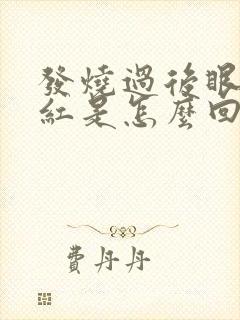 發燒過後眼
紅是怎麼回
費丹丹